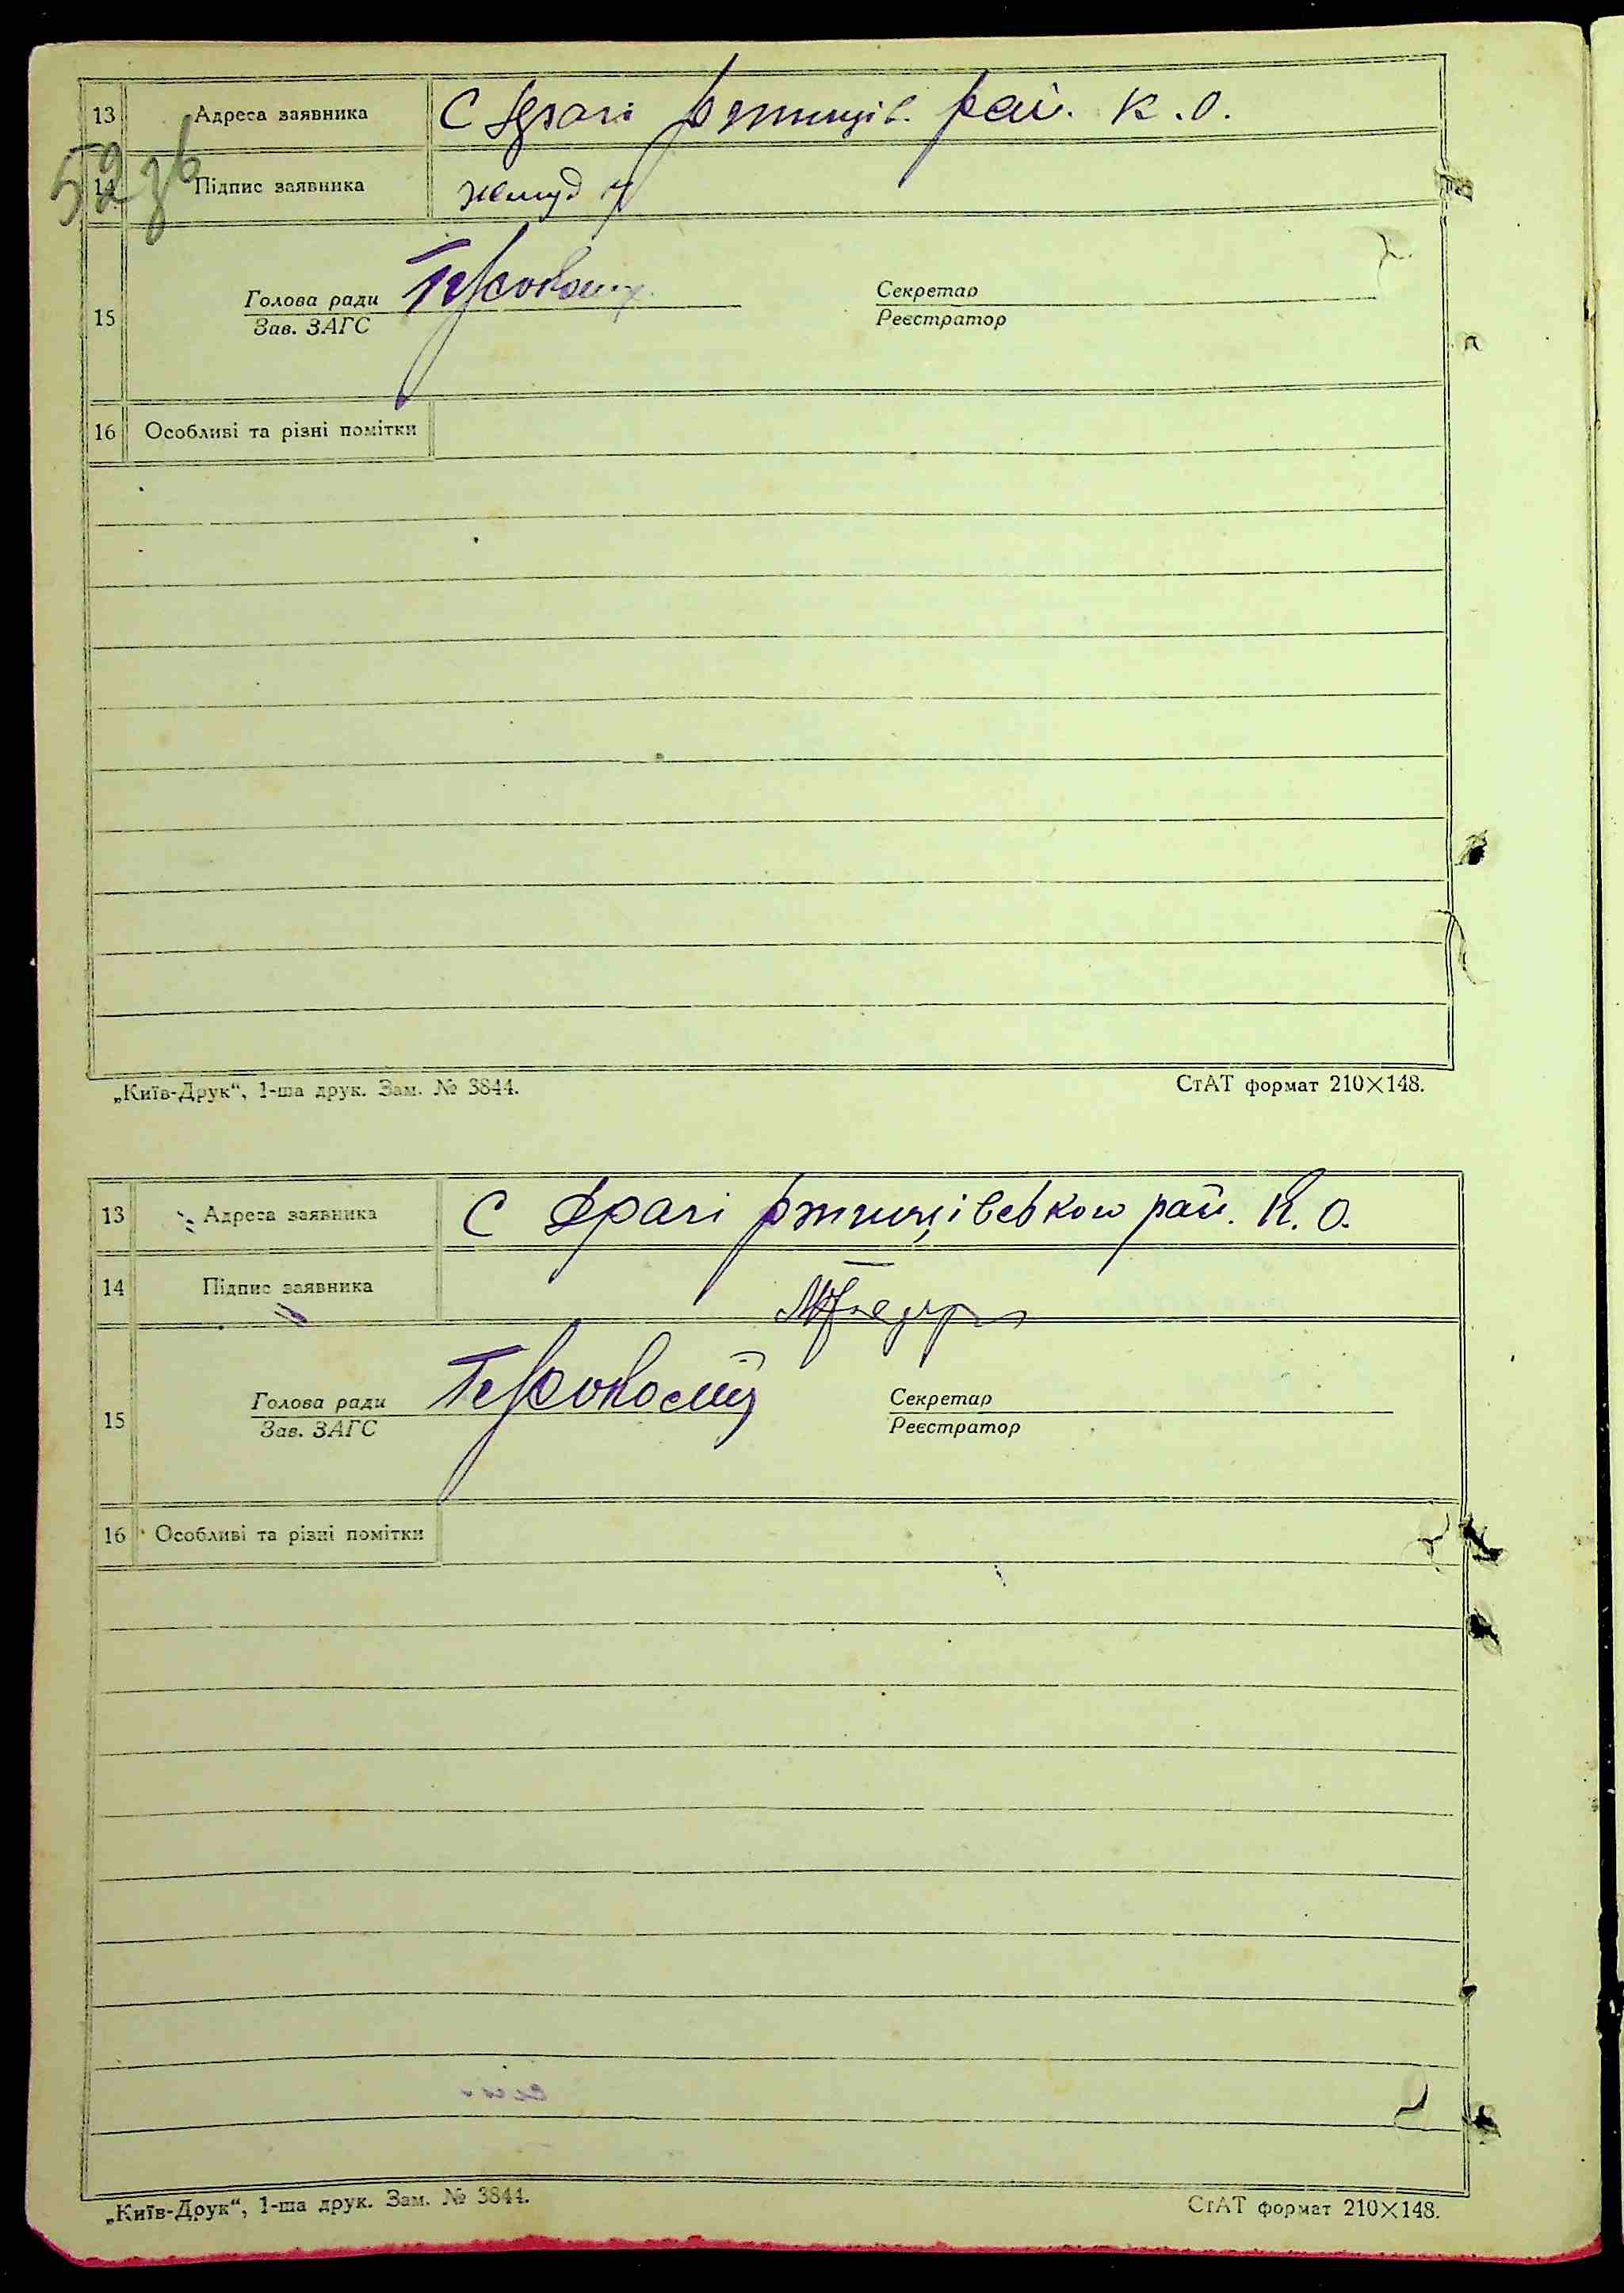 13 Адреса заявника С Драчі ржищів. рай. К.О.
52 зв
14 Підпис заявника
Голова ради Секретар
15 Зав. ЗАГС Реєстратор
16 Особливі та різні помітки
„Київ-Друк“, 1-ша друк. Зам. № 3844. СтАТ формат 210×148.
13 Адреса заявника С Драчі ржищівською рай. К.О.
14 Підпис заявника
Голова ради Секретар
15 Зав. ЗАГС Реєстратор
16 Особливі та різні помітки
„Київ-Друк“, 1-ша друк. Зам. № 3844. СтАТ формат 210×148.